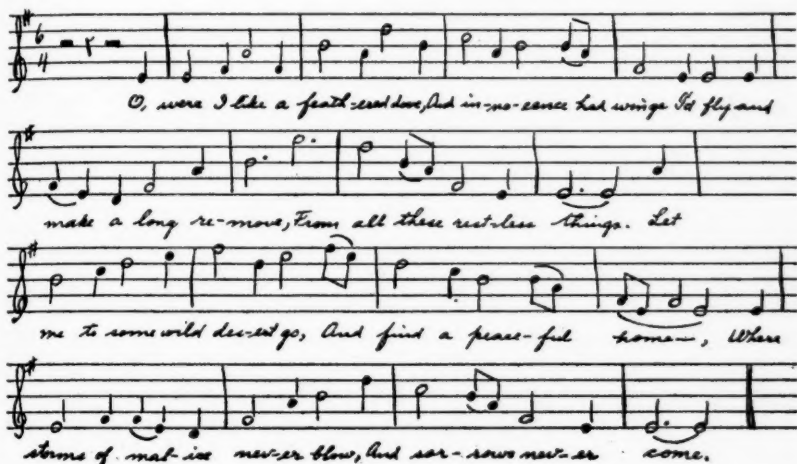 6
4
O, were I like a feath-ered dove, And in-no-cence had wings I'd fly and
make a long re-move, From all these rest-less things. Let
me to some wild des-ert go, And find a peace-ful home—, Where
storms of mal-ice nev-er blow, And sor-rows nev-er come.